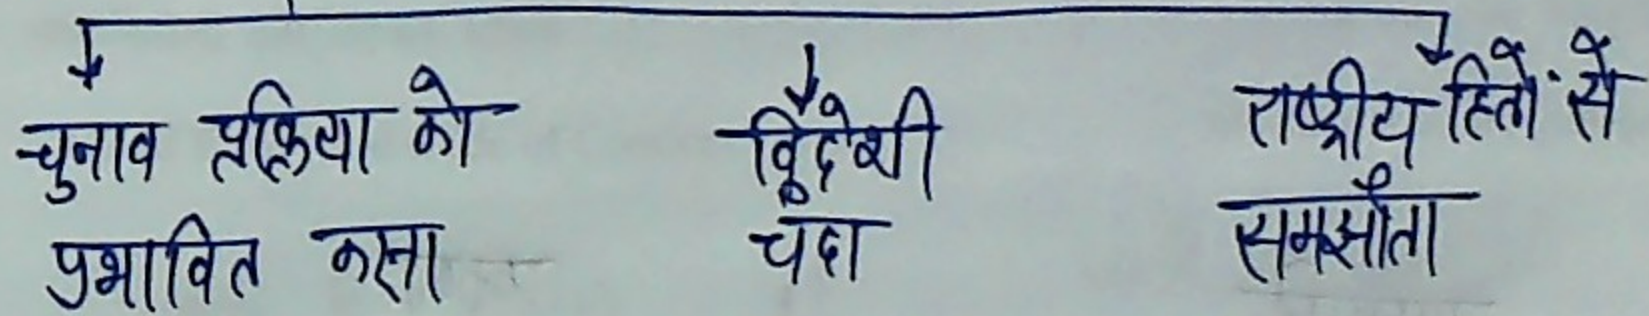 चुनाव प्रक्रिया को
प्रभावित करना
विदेशी
चंदा
राष्ट्रीय हितों से
समझौता